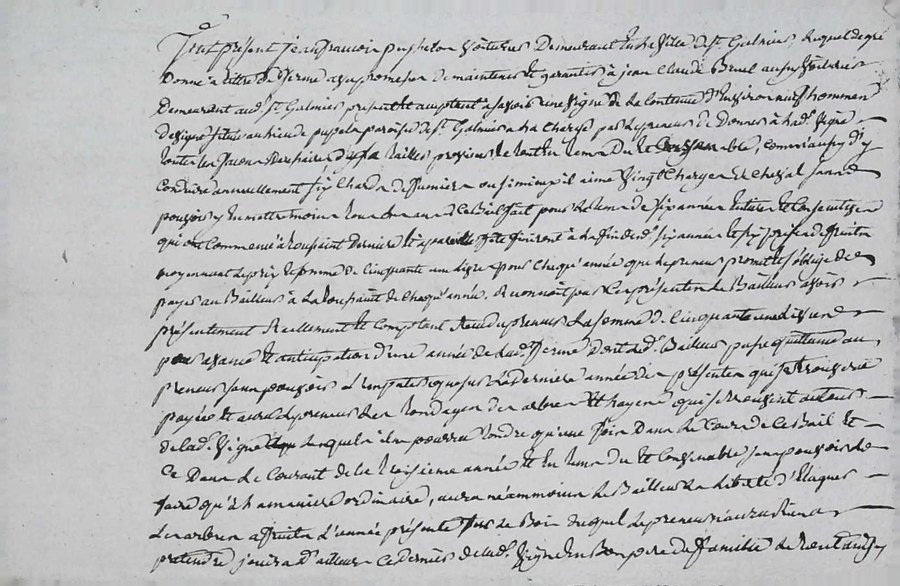 Fut présent jean francois pupier voiturier Demeurant en la ville de St. Galmier, Lequel de gré
Donne a titre De ferme avec promesse de maintenir et garantir à jean Claude Bruel aussi voiturier
Demeurant aud. St. Galmier présent et acceptant a savoir une vigne de la Contenue d'Environ hommes
de vigne située au lieu de paroisse de St. Galmier a la Charge par Le preneur de Donner à lad. Vigne
toutes les façons Necessaires tailles provins le tout en tems Du et Convenable, comme aussi d'y
Conduire annuellement six Chars De fumier ou si mieux il aime Vingt Charges De Cheval sans
pouvoir y En mettre moins Le Bail fait pour le terme de six années Entieres et Consecutives
qui ont Commencé à toussaint Derniere et a pareille fête finiront à la fin desd. six années
moyennant Le prix de ferme de Cinquante une Livre pour Chaque année que Le preneur promet et s'oblige de
payer au Bailleur à La toussaint de Chaque année. Reconnoit pour Ces présentes Le Bailleur avoir
présentement Reellement et Comptant Recu du preneur La somme de Cinquante une Livre
pour avance et anticipation d'une année de Lad. ferme Dont led. Bailleur passe quittance au
preneur sans pouvoir que sur La Derniere année des présentes qui se trouvera
payée et aura Le preneur Les tondages des arbres Et hayes qui se trouvent autour
de lad. Vigne Lesquels il ne pourra tondre qu'une fois Dans Le Cours de Ce Bail Et
Ce Dans Le Courant de la troisieme année Et En tems Du Et Convenable sans pouvoir le
faire qu'à La maniere ordinaire, aura néammoins Le Bailleur La Liberté d'Elaguer
Les arbres a fruits L'année présente Le Bois duquel Le preneur n'aura Rien a
pretendre jouira D'ailleurs Ce dernier de lad. Vigne En Bon pere De famille